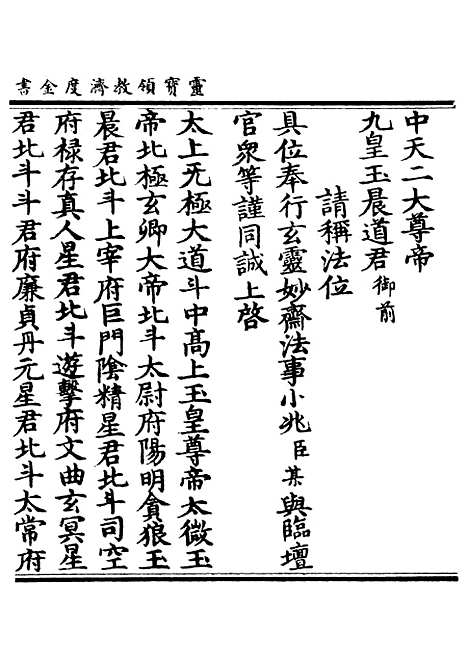 靈寶領教濟度金書
中天二大尊帝
九皇玉晨道君御前
請稱法位
具位奉行玄靈妙齋法事小兆臣某與臨壇
官眾等謹同誠上啓
太上无極大道斗中髙上玉皇尊帝太微玉
帝北極玄卿大帝北斗太尉府陽明貪狼玉
晨君北斗上宰府巨門陰精星君北斗司空
府禄存真人星君北斗遊擊府文曲玄冥星
君北斗斗君府廉貞丹元星君北斗太常府